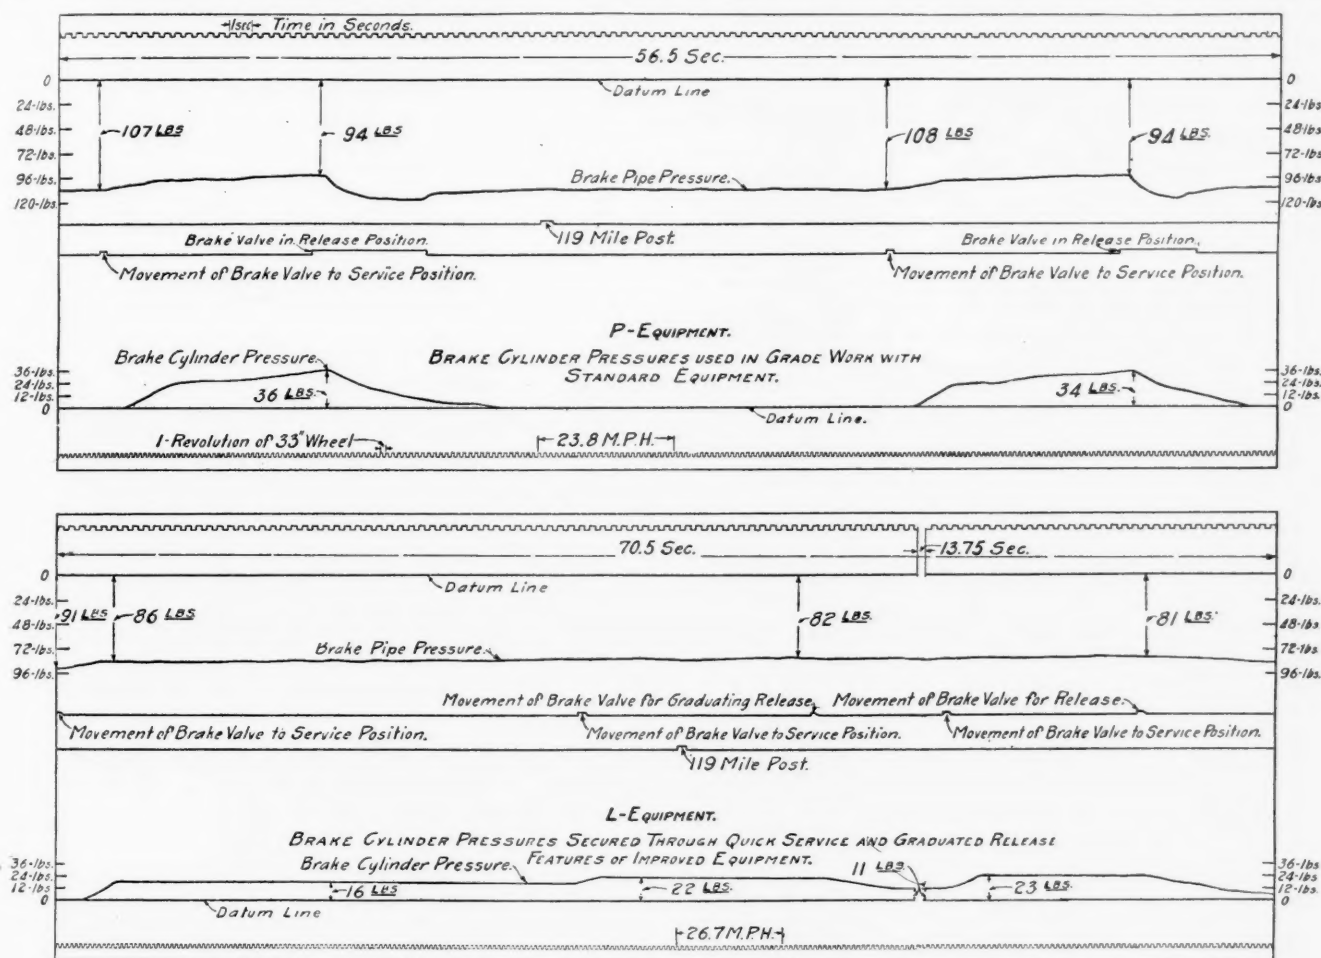 1sec Time in Seconds.
56.5 Sec.
0 0
Datum Line
24-lbs. 24-lbs.
107 LBS 94 LBS 108 LBS 94 LBS.
48-lbs. 48-lbs.
72-lbs. 72-lbs.
96-lbs. Brake Pipe Pressure. 96-lbs.
120-lbs. 120-lbs.
119 Mile Post.
Brake Valve in Release Position. Brake Valve in Release Position.
Movement of Brake Valve to Service Position. Movement of Brake Valve to Service Position.
P-EQUIPMENT.
Brake Cylinder Pressure. BRAKE CYLINDER PRESSURES USED IN GRADE WORK WITH
STANDARD EQUIPMENT.
36-lbs. 36-lbs.
24-lbs. 24-lbs.
12-lbs. 36 LBS. 34 LBS. 12-lbs.
0 0
Datum Line.
1-Revolution of 33" Wheel 23.8 M.P.H.
70.5 Sec. 13.75 Sec.
0 0
Datum Line
24-lbs. 24-lbs.
91 LBS 86 LBS 82 LBS. 81 LBS.
48-lbs. 48-lbs.
72-lbs. Brake Pipe Pressure. 72-lbs.
96-lbs. 96-lbs.
Movement of Brake Valve for Graduating Release. Movement of Brake Valve for Release.
Movement of Brake Valve to Service Position. Movement of Brake Valve to Service Position. Movement of Brake Valve to Service Position.
119 Mile Post.
L-EQUIPMENT.
BRAKE CYLINDER PRESSURES SECURED THROUGH QUICK SERVICE AND GRADUATED RELEASE
FEATURES OF IMPROVED EQUIPMENT.
Brake Cylinder Pressure.
36-lbs. 36-lbs.
24-lbs. 11 LBS. 24-lbs.
12-lbs. 16 LBS 22 LBS. 23 LBS. 12-lbs.
0 0
Datum Line
26.7 M.P.H.